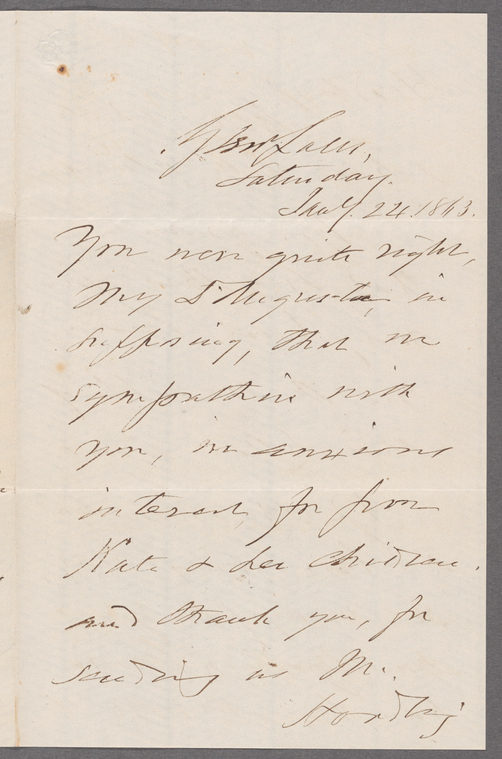 Glen Falls,
Saturday.
Jan'y. 24. 1863.
You were quite right,
my D' Augusta, in
supposing, that we
sympathise with
you, in anxious
interest, for poor
Kate & her children.
and thank you, for
sending us Mr.